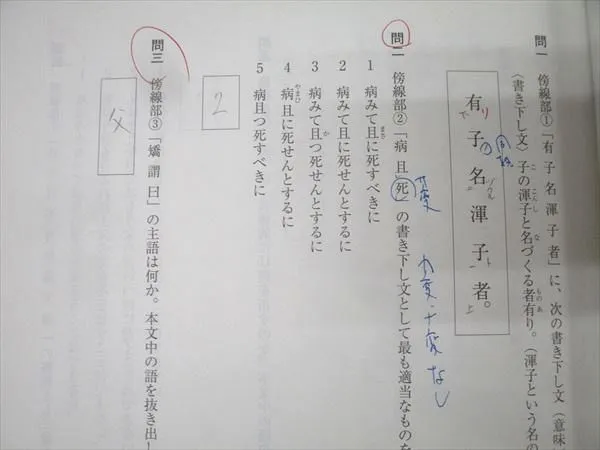 問一 傍線部①「有子名渾子者」に、次の書き下し文(意味
〈書き下し文〉子の渾子と名づくる者有り。(渾子という名の
こ こんし な ものあ
有子名渾子者。
リ
下
ヅクル
二
ト
一
上
問二 傍線部②「病且死」の書き下し文として最も適当なものを
サ変 カ変・ナ変なし
1 病みて且に死すべきに
まさ
2 病みて且に死せんとするに
3 病みて且つ死せんとするに
か
4 病且に死せんとするに
やまひ
5 病且つ死すべきに
2
問三 傍線部③「矯謂曰」の主語は何か。本文中の語を抜き出し
父